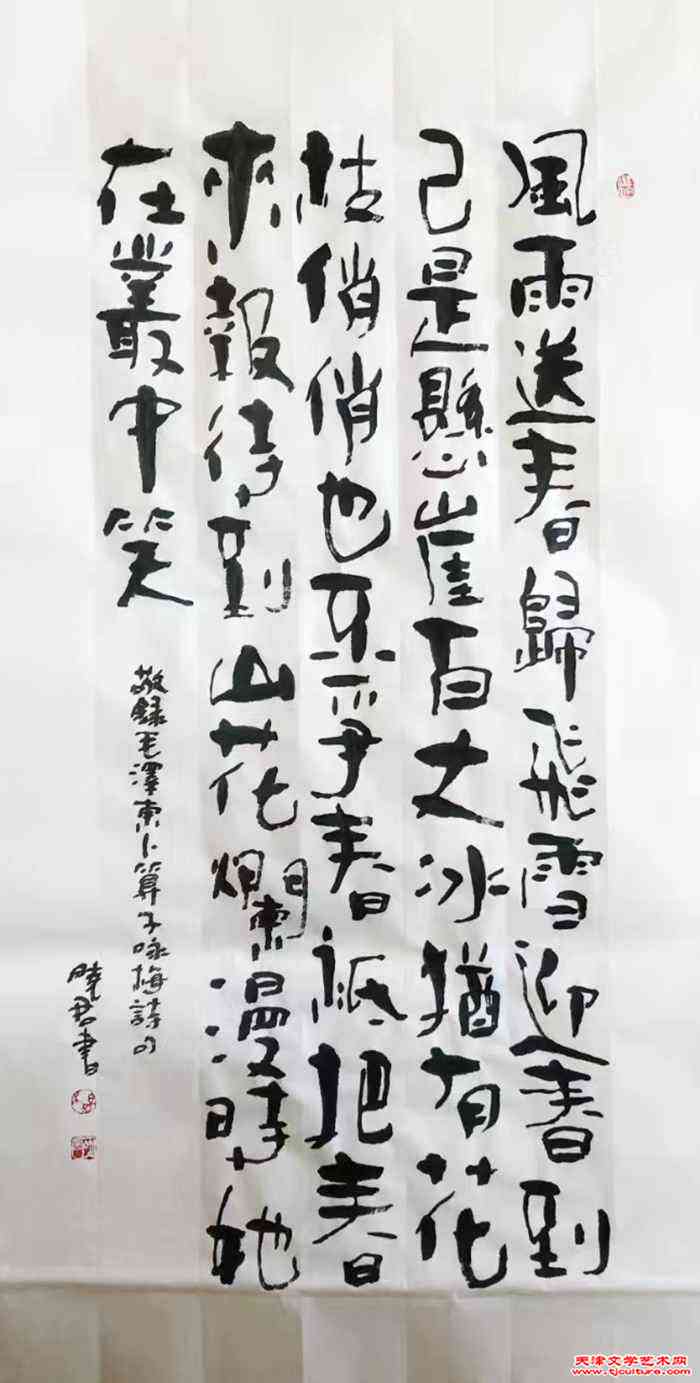 風雨送春歸飛雪迎春到
已是懸崖百丈冰猶有花
枝俏俏也不爭春祇把春
來報待到山花爛漫時她
在叢中笑
敬錄毛澤東卜算子咏梅詩句
曉君書
天津文学艺术网
www.tjculture.com